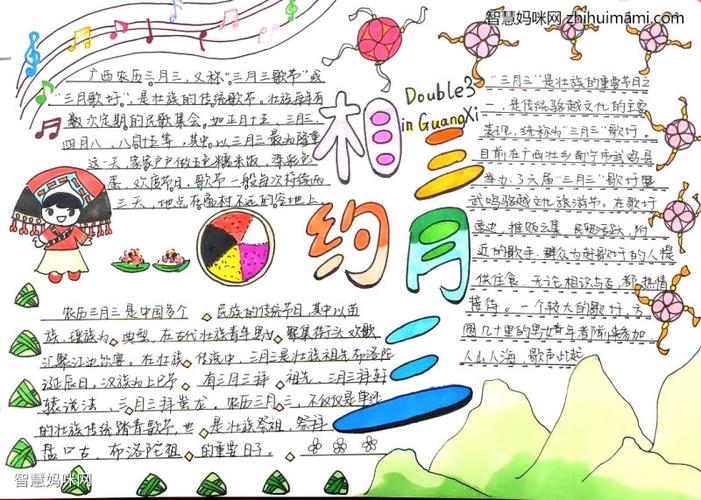 智慧妈咪网 zhihuimami.com
广西农历三月三，又称"三月三歌节"或
"三月歌圩"，是壮族的传统歌节。壮族每有
数次定期的民歌集会，如正月十五、三月三、
四月八、八月十五等，其中以三月三最为隆重
这一天，家家户户做五色糯米饭，染彩色
蛋，欢度节日，歌节一般每次持续两
三天，地点在离村不远的空地上
相约
三月三
Double3
in GuangXi
"三月三"是壮族的重要节日之
一，是传统骆越文化的主要
表现，统称为"三月三"歌圩，
目前在广西壮乡南宁市武鸣县
举办了六届"三月三"歌圩暨
武鸣骆越文化旅游节。在歌圩
旁边，摊贩云集，民贸活跃，附
近的歌手、群众为赶歌圩的人提
供住食，无论相识与否，都热情
接待。一个较大的歌圩，方
圆几十里的男女青年都前来参加
人山人海，歌声此起
农历三月三是中国多个民族的传统节日，其中以苗
族、瑶族为典型，在古代壮族青年男女聚集街头欢歌
汇聚江边饮宴。在壮族传统中，三月三是壮族祖先布洛陀
诞辰日，汉族为上巳节，有三月三拜祖先，三月三拜轩
辕说法，三月三拜蚩龙，农历三月三，不仅仅是单纯
的壮族传统踏青歌节，也是壮族祭祖，祭拜
盘古、布洛陀祖的重要日子。
智慧妈咪网